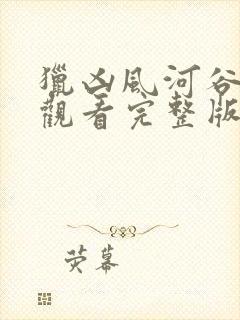 獵凶風河谷
觀看完整版
荧幕